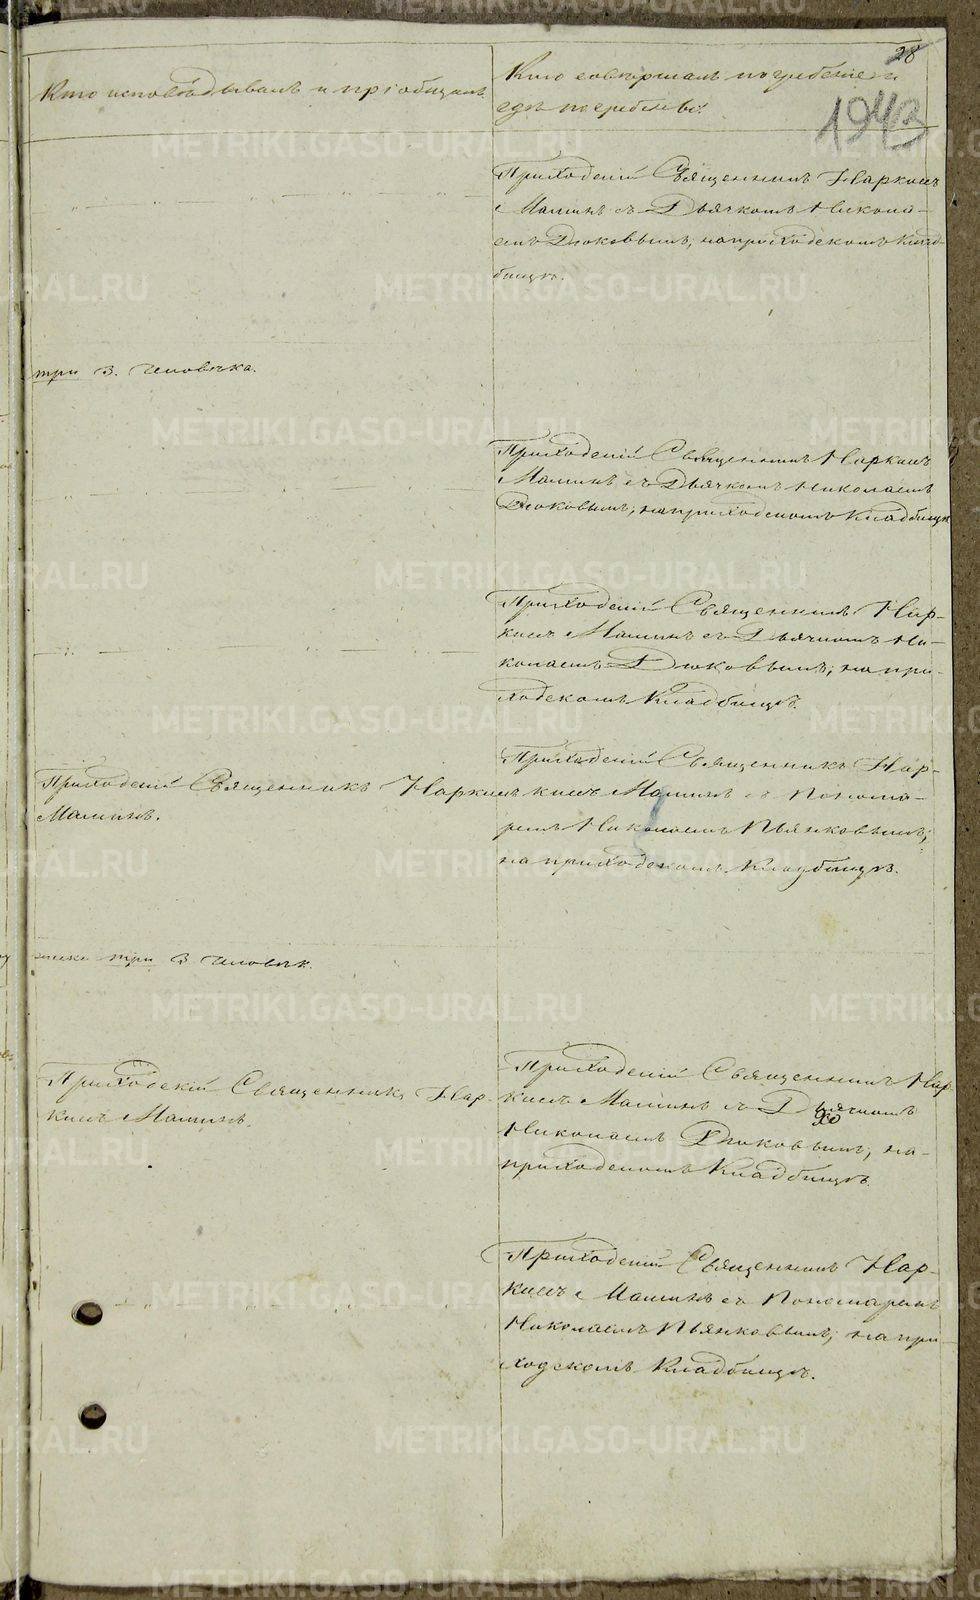 28
1943
Кто исповѣдывалъ и пріобщалъ.
Кто совершалъ погребеніе и
гдѣ погребены.
Приходскій Священникъ Наркисъ
Маминъ съ Дьячкомъ Никола-
емъ Дюковымъ, на приходскомъ клад-
бищѣ.
три 3. человѣка.
Приходскій Священникъ Наркисъ
Маминъ съ Дьячкомъ Николаемъ
Дюковымъ, на приходскомъ Кладбищѣ
Приходскій Священникъ Нар-
кисъ Маминъ съ Дьячкомъ Ни-
колаемъ Дюковымъ, на при-
ходскомъ Кладбищѣ.
Приходскій Священникъ Наркисъ
Маминъ.
Приходскій Священникъ Нар-
кисъ Маминъ съ Понома-
ремъ Николаемъ Пьянковымъ;
на приходскомъ Кладбищѣ.
три 3 человѣк.
Приходскій Священникъ Нар-
кисъ Маминъ.
Приходскій Священникъ Нар-
кисъ Маминъ съ Дьячкомъ
Николаемъ Дюковымъ, на-
приходскомъ Кладбищѣ.
Приходскій Священникъ Нар-
кисъ Маминъ съ Пономаремъ
Николаемъ Пьянковымъ; на при-
ходскомъ Кладбищѣ.
METRIKI.GASO-URAL.RU